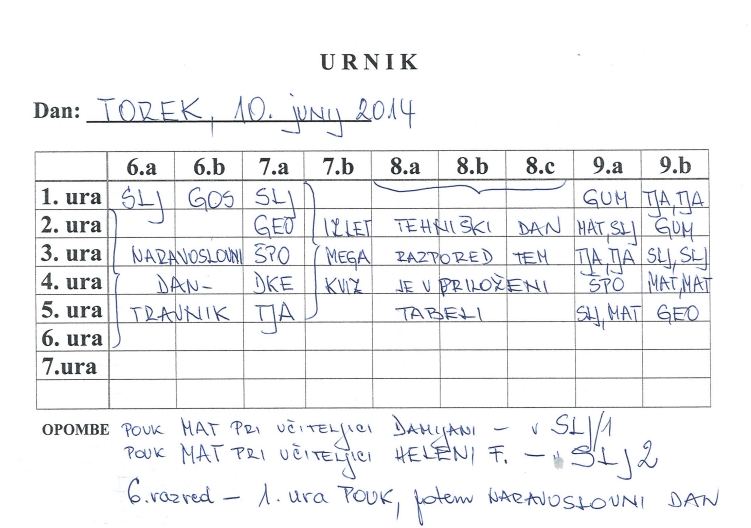 URNIK
Dan: TOREK, 10. junij 2014
6.a 6.b 7.a 7.b 8.a 8.b 8.c 9.a 9.b
1. ura SLJ GOS SLJ GUM TJA, TJA
2. ura GEO IZLET TEHNIŠKI DAN MAT, SLJ GUM
3. ura NARAVOSLOVNI ŠPO MEGA RAZPORED TEM TJA, TJA SLJ, SLJ
4. ura DAN- DKE KVIZ JE V PRILOŽENI ŠPO MAT, MAT
5. ura TRAVNIK TJA TABELI SLJ, MAT GEO
6. ura
7.ura
OPOMBE POUK MAT PRI UČITELJICI DAMIJANI - v SLJ/1
POUK MAT PRI UČITELJICI HELENI F. - v SLJ 2
6. razred - 1. ura POUK, potem NARAVOSLOVNI DAN